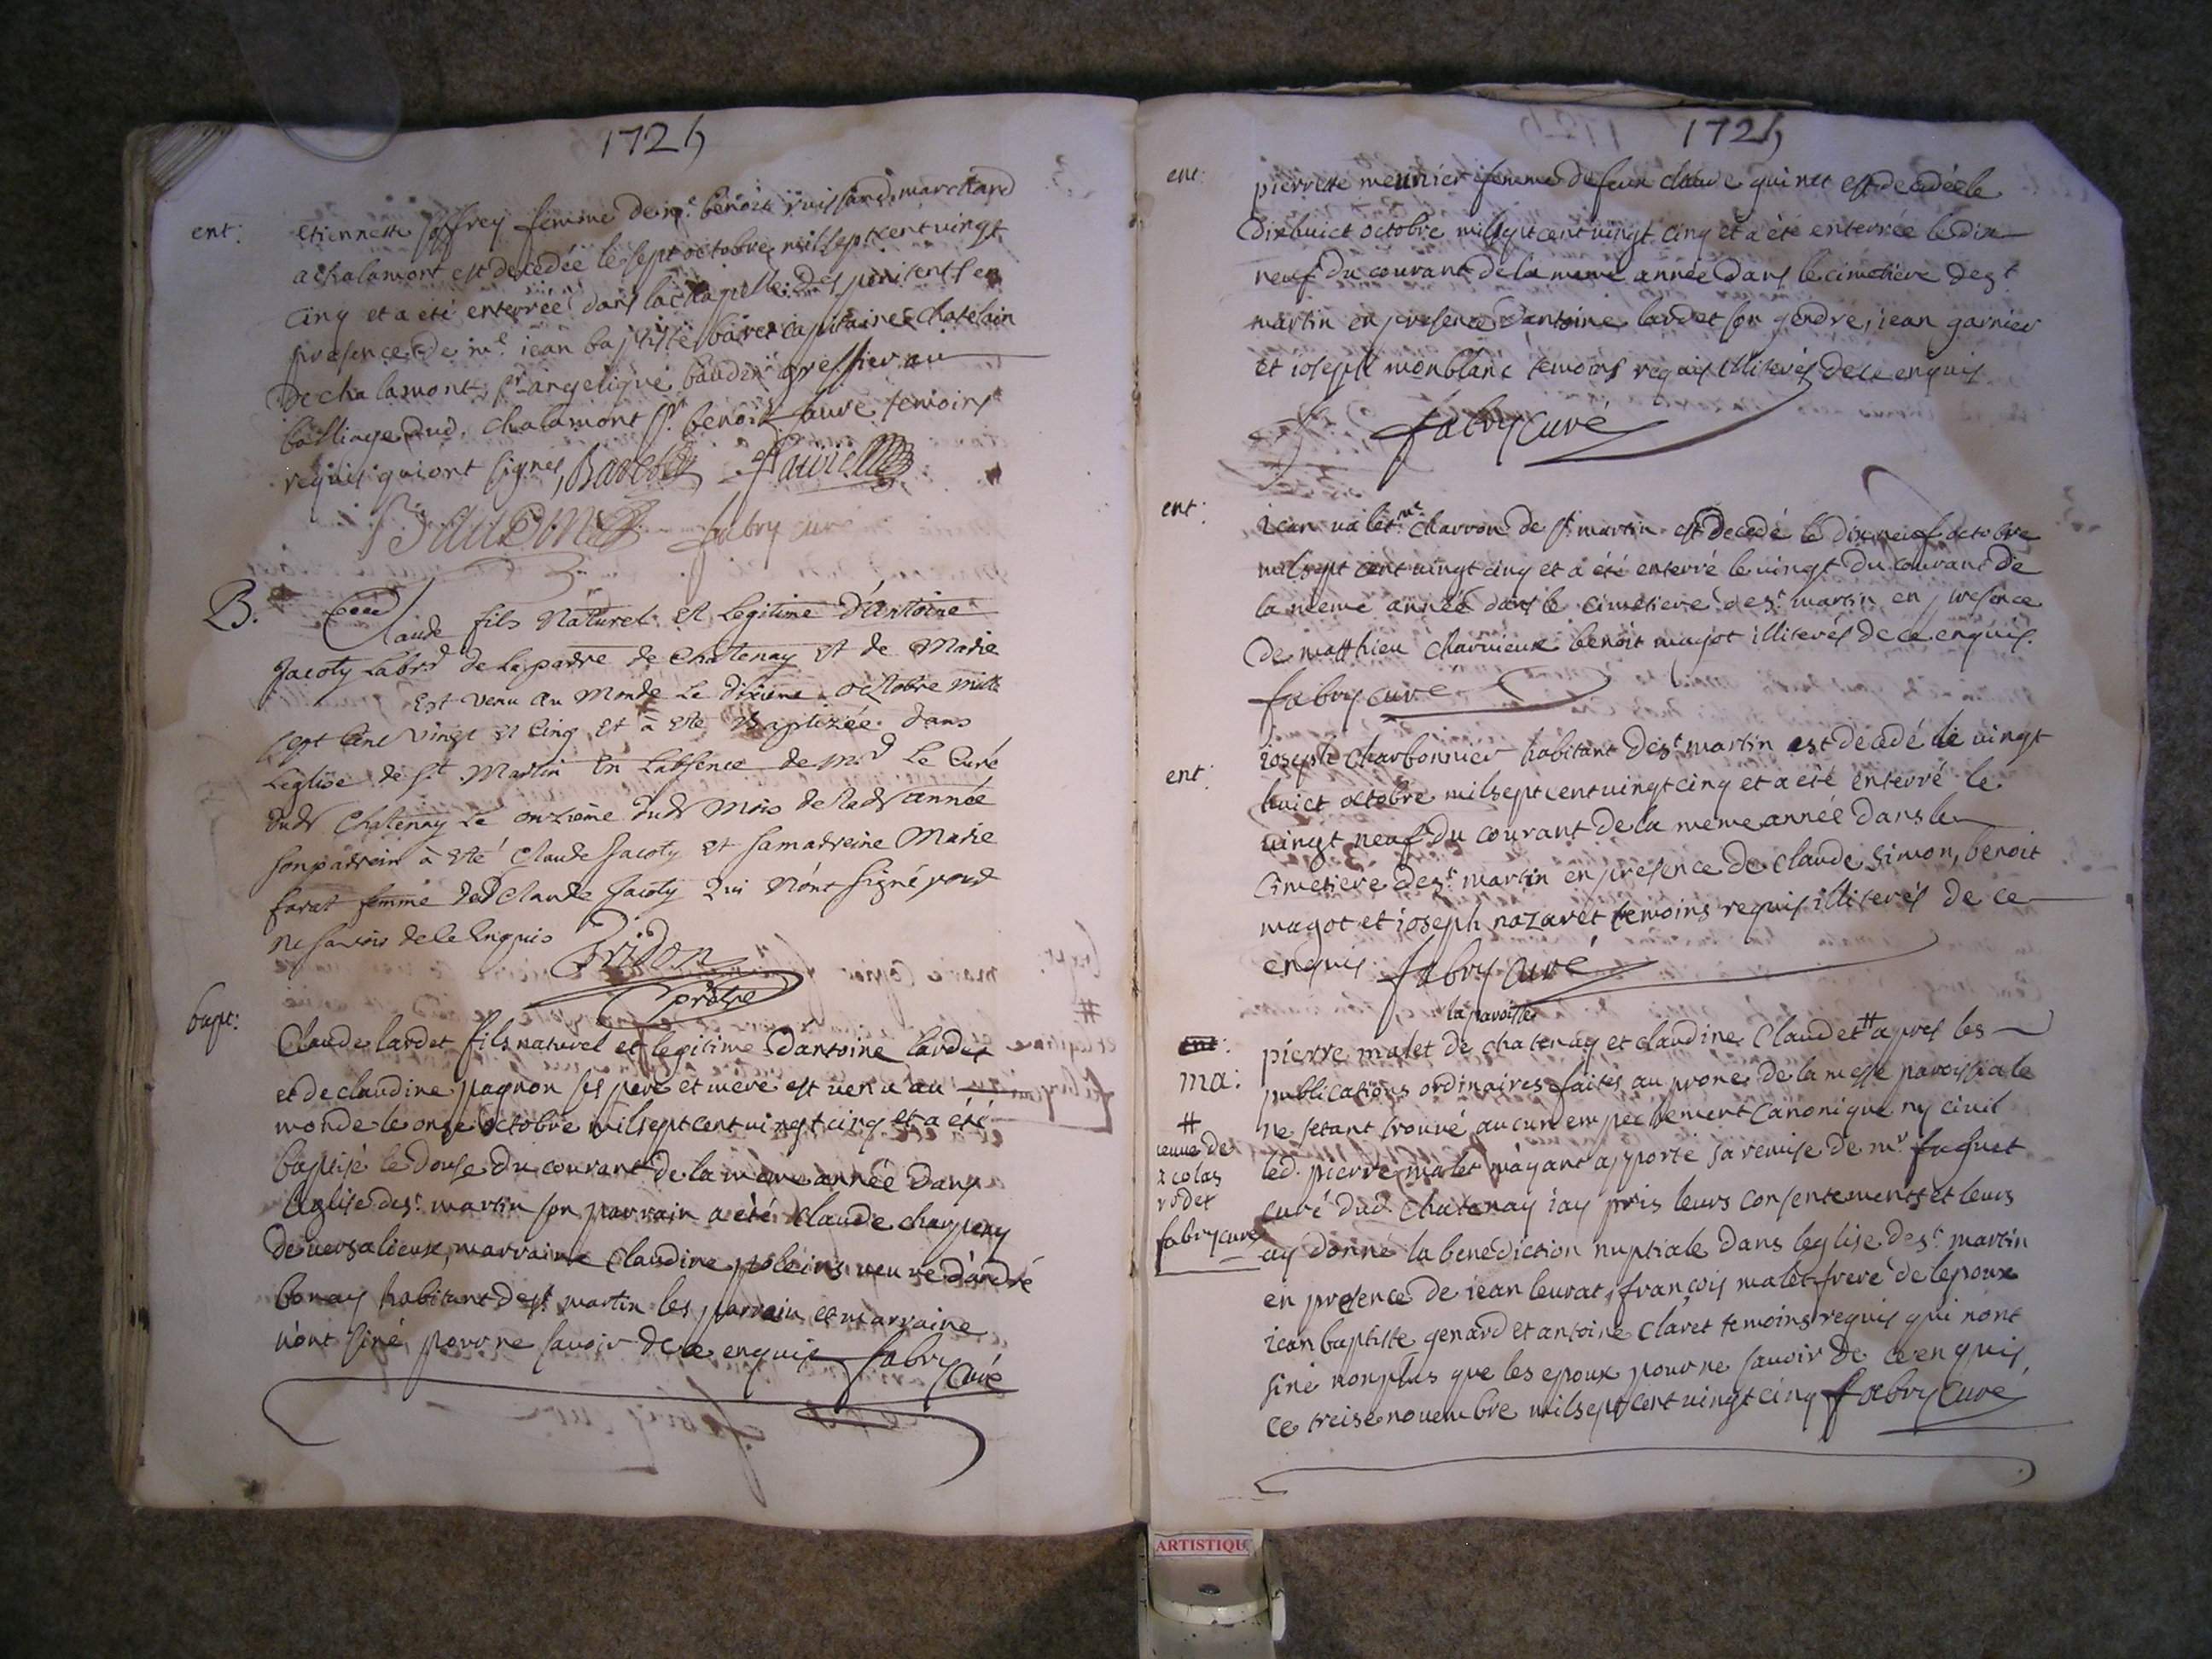 1725
ent: etiennette joffrey femme de mr. benoit ruissand marchand
a chalamont est decedée le sept octobre milseptcent vingt
cinq et a eté enterrée dans la chapelle des penitents en
presence de mr. iean baptiste baret capitaine chatelain
de chalamont, sr. angelique baudin greffier au
bailliage dud. chalamont sr. benoit faure temoins
requis qui ont signés,
fabry curé
B. Claude fils Naturel et Legitime D'Antoine
Jacoty Labrd de La parre de Chatenay et de Marie
Est venu au Monde Le dixième octobre mille
sept Cent vingt et Cinq, et à eté Baptizée dans
Leglise de St. Martin En Labsence de Mr Le Curé
dudt Chatenay Le onzième dudt Mois de Ladt année
son parrein à eté Claude Jacoty et sa marreine Marie
farat femme dudt Claude Jacoty Qui N'ont signé pour
ne savoir de Ce Enquis Bridon
prêtre
bapt: Claude lardet fils naturel et legitime dantoine lardet
et de claudine pagnon ses pere et mere est venu au
monde le onze octobre milseptcent vingt cinq et a eté
baptisé le douse du courant de la meme année dans
leglise de st. martin son parrain a eté claude charpeny
de versalieux, marraine claudine poleins veuve d'andré
bonay habitant de st martin les parrain et marraine
n'ont siné pour ne savoir de ce enquis fabry
Curé
1725
ent: pierrette meunier femme de feux claude quinet est decedée le
dixhuict octobre milseptcent vingt cinq et a eté enterrée le dix
neuf du courant de la meme année dans le cimetiere de st
martin en presence d'antoine lardet son gendre, iean garnier
et ioseph monblanc temoins requis illiterés de ce enquis
fabry curé
ent: iean valet me. charron de st martin est decedé le dixneuf octobre
milsept cent vingt cinq et a été enterré le vingt du courant de
la meme année dans le cimetiere de st. martin en presence
de matthieu charvieux benoit magot illiterés de ce enquis.
fabry curé
ent: ioseph charbonnier habitant de st martin est decedé le vingt
huict octobre milseptcent vingt cinq et a eté enterré le
vingt neuf du courant de la meme année dans le
cimetiere de st. martin en presence de claude simon, benoit
magot et ioseph nazaret temoins requis illiterés de ce
enquis. fabry curé
la paroisse
ent: pierre malet de chatenay et claudine Claudet # apres les
ma: publications ordinaires faites au prone de la messe paroissiale
# ne setant trouvé aucun empechement canonique ny civil
veuve de
nicolas
rodet
fabry curé
led. pierre malet m'ayant apporté sa remise de mr. faguet
curé dud. chatenay iay pris leurs consentements et leurs
ay donné la benediction nuptiale dans leglise de st. martin
en presence de iean leurat, françois malet frere de lepoux
iean baptiste genard et antoine claret temoins requis qui nont
siné non plus que les epoux pour ne savoir de ce enquis,
ce treise novembre milsept cent vingt cinq fabry curé
ARTISTIQU